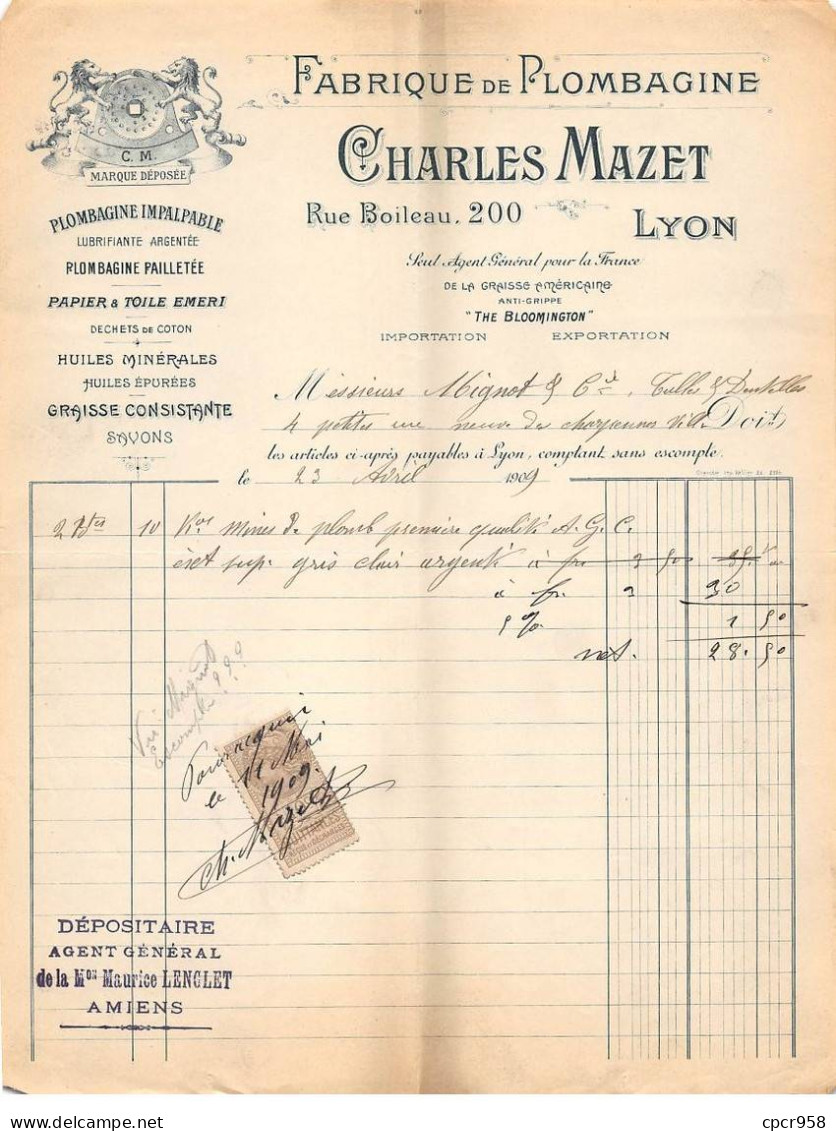 FABRIQUE DE PLOMBAGINE
CHARLES MAZET
Rue Boileau, 200
LYON
Seul Agent Général pour la France
DE LA GRAISSE AMÉRICAINE
ANTI-GRIPPE
"THE BLOOMINGTON"
IMPORTATION EXPORTATION
C. M.
MARQUE DÉPOSÉE
PLOMBAGINE IMPALPABLE
LUBRIFIANTE ARGENTÉE
PLOMBAGINE PAILLETÉE
PAPIER & TOILE EMERI
DECHETS DE COTON
HUILES MINÉRALES
HUILES ÉPURÉES
GRAISSE CONSISTANTE
SAVONS
Messieurs Mignot & Cie, Tulles & Dentelles
4 petite rue neuve de Ville Doit
les articles ci-après payables à Lyon, comptant sans escompte.
le 23 Avril 1909
2 Btes 10 Kos mine de plomb première qualité A. G. C.
sup. gris clair argenté à fr. 3 50
à fr. 3 30
5 % 1 50
net. 28. 50
Mignot
Escompte
Pour acquit
le 11 Mai
1909.
Ch. Mazet
QUITTANCES
DÉPOSITAIRE
AGENT GÉNÉRAL
de la Mon Maurice LENGLET
AMIENS
cpcr958